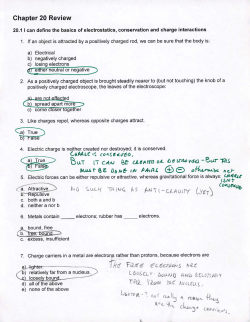 Chapter 20 Review
20.1 I can define the basics of electrostatics, conservation and charge interactions
1. If an object is attracted by a positively charged rod, we can be sure that the body is:
a) Electrical
b) negatively charged
c) losing electrons
d) either neutral or negative
2. As a positively charged object is brought steadily nearer to (but not touching) the knob of a
positively charged electroscope, the leaves of the electroscope:
a) are not affected
b) spread apart more
c) come closer together
3. Like charges repel, whereas opposite charges attract.
a) True
b) False
4. Electric charge is neither created nor destroyed, it is conserved.
CHARGE IS CONSERVED,
a) True
BUT IT CAN BE CREATED OR DESTROYED - BUT THIS
b) False
MUST BE DONE IN PAIRS + - otherwise not
CHARGE
ISN'T
CONSERVED
5. Electric forces can be either repulsive or attractive, whereas gravitational force is always:
a. Attractive
NO SUCH THING AS ANTI-GRAVITY (YET)
b. Repulsive
c. both a and b
d. neither a nor b
6. Metals contain ____ electrons; rubber has ____ electrons.
a. bound, free
b. free, bound
c. excess, insufficient
7. Charge carriers in a metal are electrons rather than protons, because electrons are
a) lighter
THE FREE ELECTRONS ARE
b) relatively far from a nucleus.
LOOSELY BOUND AND RELATIVELY
c) loosely bound.
FAR FROM THE NUCLEUS.
d) all of the above
e) none of the above
LIGHTER - not really a reason they
are the charge carriers.